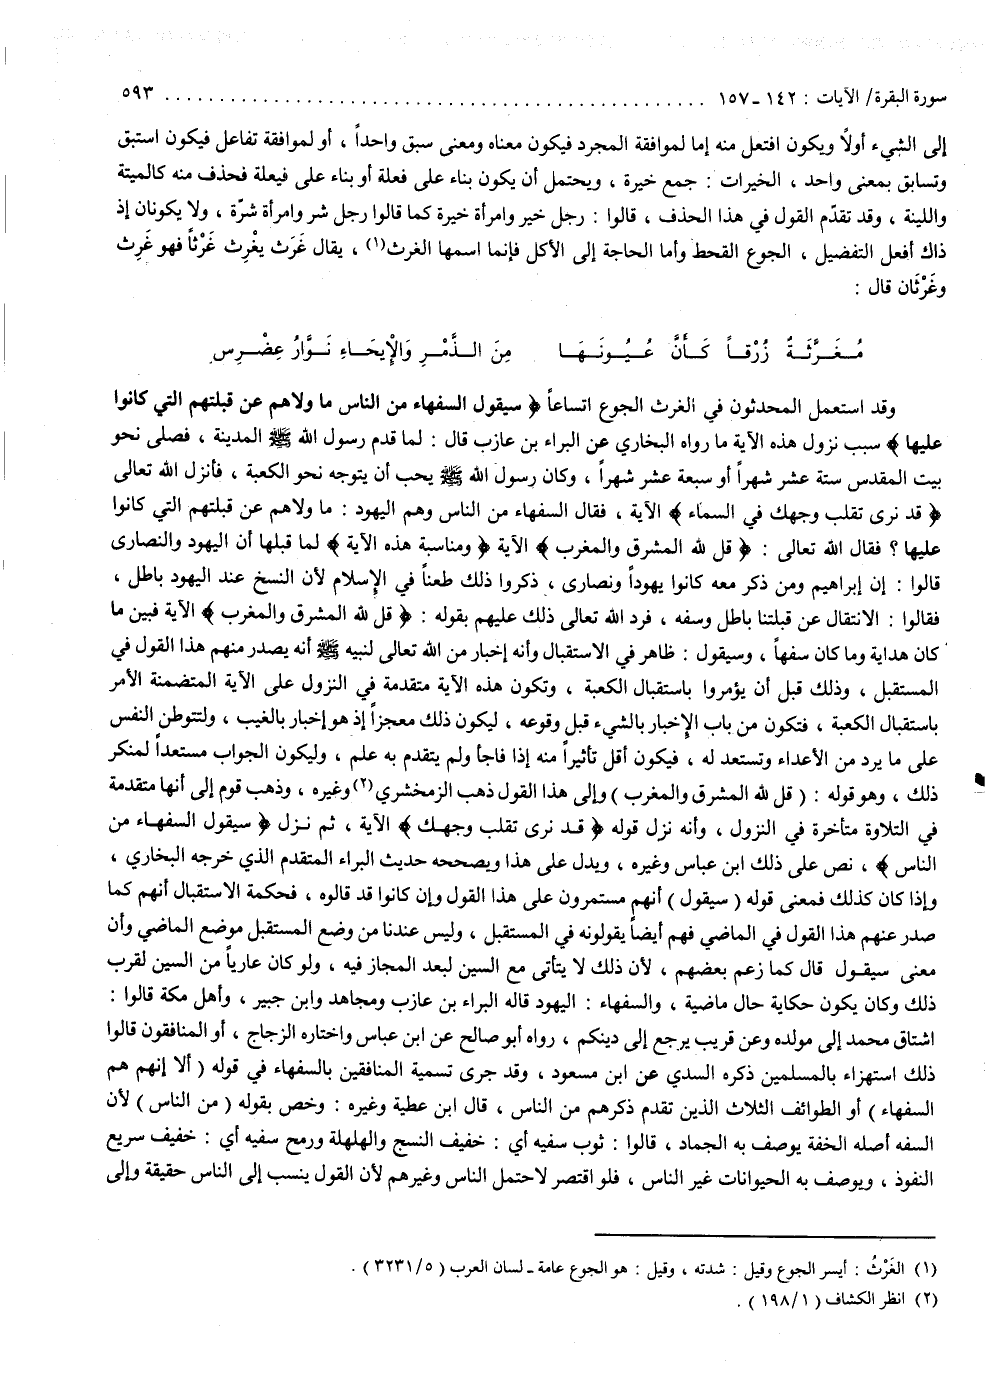 سورة البقرة/ الآيات : ١٤٢ ـ ١٥٧ ........................................ ٥٩٣
إلى الشيء أولاً ويكون افتعل منه إما لموافقة المجرد فيكون معناه ومعنى سبق واحداً ، أو لموافقة تفاعل فيكون استبق
وتسابق بمعنى واحد ، الخيرات : جمع خيرة ، ويحتمل أن يكون بناء على فعلة أو بناء على فيعلة فحذف منه كالميتة
واللينة ، وقد تقدّم القول في هذا الحذف ، قالوا : رجل خير وامرأة خيرة كما قالوا رجل شر وامرأة شرّة ، ولا يكونان إذ
ذاك أفعل التفضيل ، الجوع القحط وأما الحاجة إلى الأكل فإنما اسمها الغرث(١) ، يقال غَرَث يغْرِث غَرْثاً فهو غَرِث
وغَرْثَان قال :
مُغَرَّثَةً زُرْقاً كَأَنَّ عُيُونَهَا مِنَ الذَّمْرِ وَالْإِيحَاءِ نَوَّارُ عِضْرِسِ
وقد استعمل المحدثون في الغرث الجوع اتساعاً ﴿ سيقول السفهاء من الناس ما ولاهم عن قبلتهم التي كانوا
عليها ﴾ سبب نزول هذه الآية ما رواه البخاري عن البراء بن عازب قال : لما قدم رسول الله ﷺ المدينة ، فصلى نحو
بيت المقدس ستة عشر شهراً أو سبعة عشر شهراً ، وكان رسول الله ﷺ يحب أن يتوجه نحو الكعبة ، فأنزل الله تعالى
﴿ قد نرى تقلب وجهك في السماء ﴾ الآية ، فقال السفهاء من الناس وهم اليهود : ما ولاهم عن قبلتهم التي كانوا
عليها ؟ فقال الله تعالى : ﴿ قل لله المشرق والمغرب ﴾ الآية ﴿ ومناسبة هذه الآية ﴾ لما قبلها أن اليهود والنصارى
قالوا : إن إبراهيم ومن ذكر معه كانوا يهوداً ونصارى ، ذكروا ذلك طعناً في الإسلام لأن النسخ عند اليهود باطل ،
فقالوا : الانتقال عن قبلتنا باطل وسفه ، فرد الله تعالى ذلك عليهم بقوله : ﴿ قل لله المشرق والمغرب ﴾ الآية فبين ما
كان هداية وما كان سفهاً ، وسيقول : ظاهر في الاستقبال وأنه إخبار من الله تعالى لنبيه ﷺ أنه يصدر منهم هذا القول في
المستقبل ، وذلك قبل أن يؤمروا باستقبال الكعبة ، وتكون هذه الآية متقدمة في النزول على الآية المتضمنة الأمر
باستقبال الكعبة ، فتكون من باب الإخبار بالشيء قبل وقوعه ، ليكون ذلك معجزاً إذ هو إخبار بالغيب ، ولتتوطن النفس
على ما يرد من الأعداء وتستعد له ، فيكون أقل تأثيراً منه إذا فاجأ ولم يتقدم به علم ، وليكون الجواب مستعداً لمنكر
ذلك ، وهو قوله : ( قل لله المشرق والمغرب ) وإلى هذا القول ذهب الزمخشري(٢) وغيره ، وذهب قوم إلى أنها متقدمة
في التلاوة متأخرة في النزول ، وأنه نزل قوله ﴿ قد نرى تقلب وجهك ﴾ الآية ، ثم نزل ﴿ سيقول السفهاء من
الناس ﴾ ، نص على ذلك ابن عباس وغيره ، ويدل على هذا ويصححه حديث البراء المتقدم الذي خرجه البخاري ،
وإذا كان كذلك فمعنى قوله ( سيقول ) أنهم مستمرون على هذا القول وإن كانوا قد قالوه ، فحكمة الاستقبال أنهم كما
صدر عنهم هذا القول في الماضي فهم أيضاً يقولونه في المستقبل ، وليس عندنا من وضع المستقبل موضع الماضي وأن
معنى سيقول قال كما زعم بعضهم ، لأن ذلك لا يتأتى مع السين لبعد المجاز فيه ، ولو كان عارياً من السين لقرب
ذلك وكان يكون حكاية حال ماضية ، والسفهاء : اليهود قاله البراء بن عازب ومجاهد وابن جبير ، وأهل مكة قالوا :
اشتاق محمد إلى مولده وعن قريب يرجع إلى دينكم ، رواه أبو صالح عن ابن عباس واختاره الزجاج ، أو المنافقون قالوا
ذلك استهزاء بالمسلمين ذكره السدي عن ابن مسعود ، وقد جرى تسمية المنافقين بالسفهاء في قوله ( ألا إنهم هم
السفهاء ) أو الطوائف الثلاث الذين تقدم ذكرهم من الناس ، قال ابن عطية وغيره : وخص بقوله ( من الناس ) لأن
السفه أصله الخفة يوصف به الجماد ، قالوا : ثوب سفيه أي : خفيف النسج والهلهلة ورمح سفيه أي : خفيف سريع
النفوذ ، ويوصف به الحيوانات غير الناس ، فلو اقتصر لاحتمل الناس وغيرهم لأن القول ينسب إلى الناس حقيقة وإلى
(١) الغَرْثُ : أيسر الجوع وقيل : شدته ، وقيل : هو الجوع عامة ـ لسان العرب ( ٥/ ٣٢٣١ ) .
(٢) انظر الكشاف ( ١/ ١٩٨ ) .